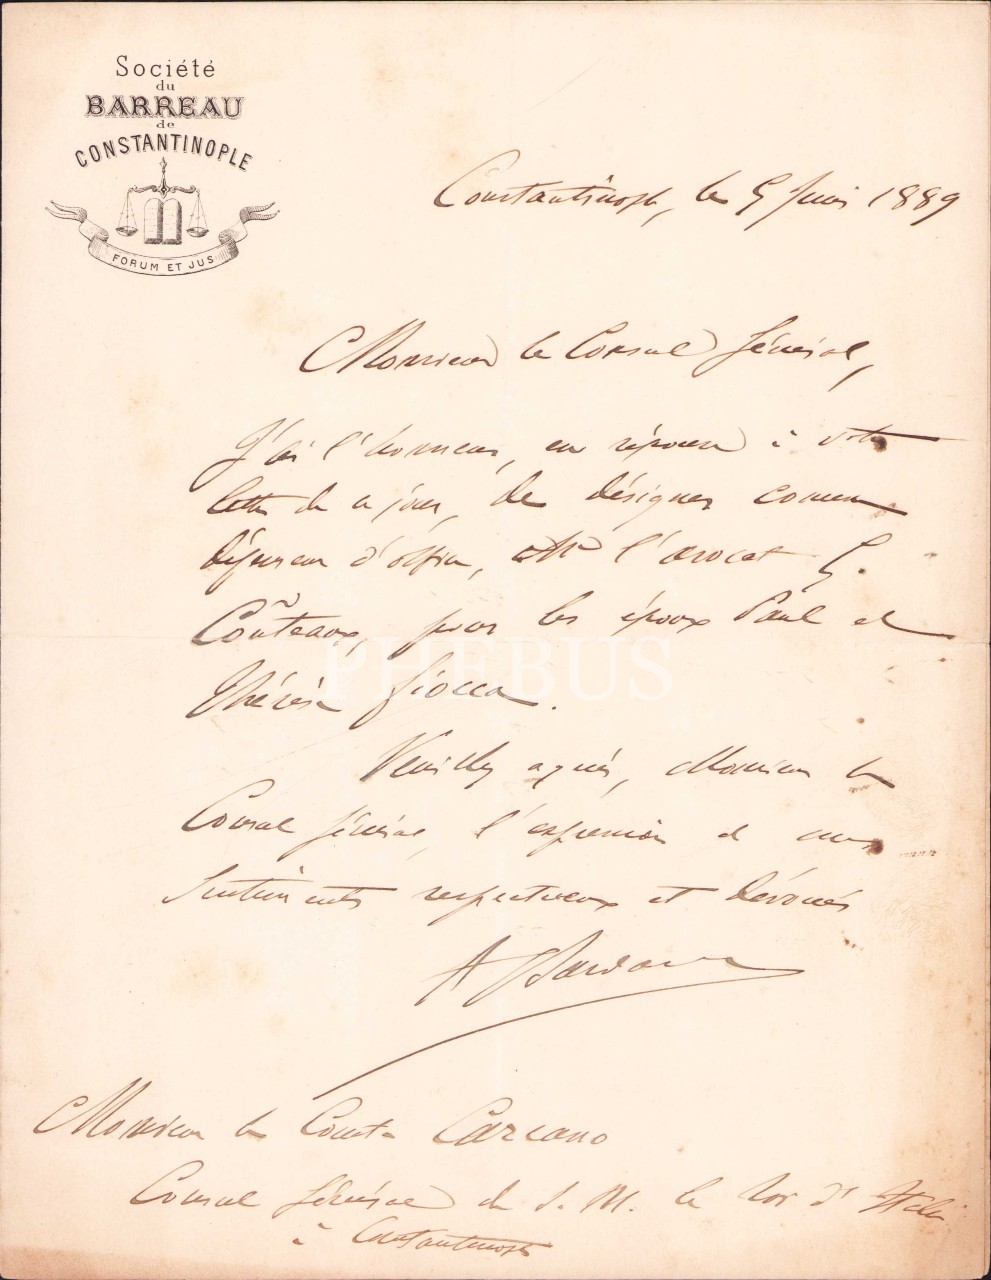 Société
du
BARREAU
de
CONSTANTINOPLE
FORUM ET JUS
Constantinople, le 5 Juin 1889
Monsieur le Consul Général,
J'ai l'honneur, en réponse à votre
lettre de ce jour, de désigner comme
défenseur d'office, Mr l'avocat G.
Coûteaux, pour les époux Paul et
Thérèse Fiocca.
Veuillez agréer, Monsieur le
Consul Général, l'expression de mes
sentiments respectueux et dévoués
A
PHEBUS
Monsieur le Comte Carcano
Consul Général de S. M. le Roi d'Italie
à Constantinople